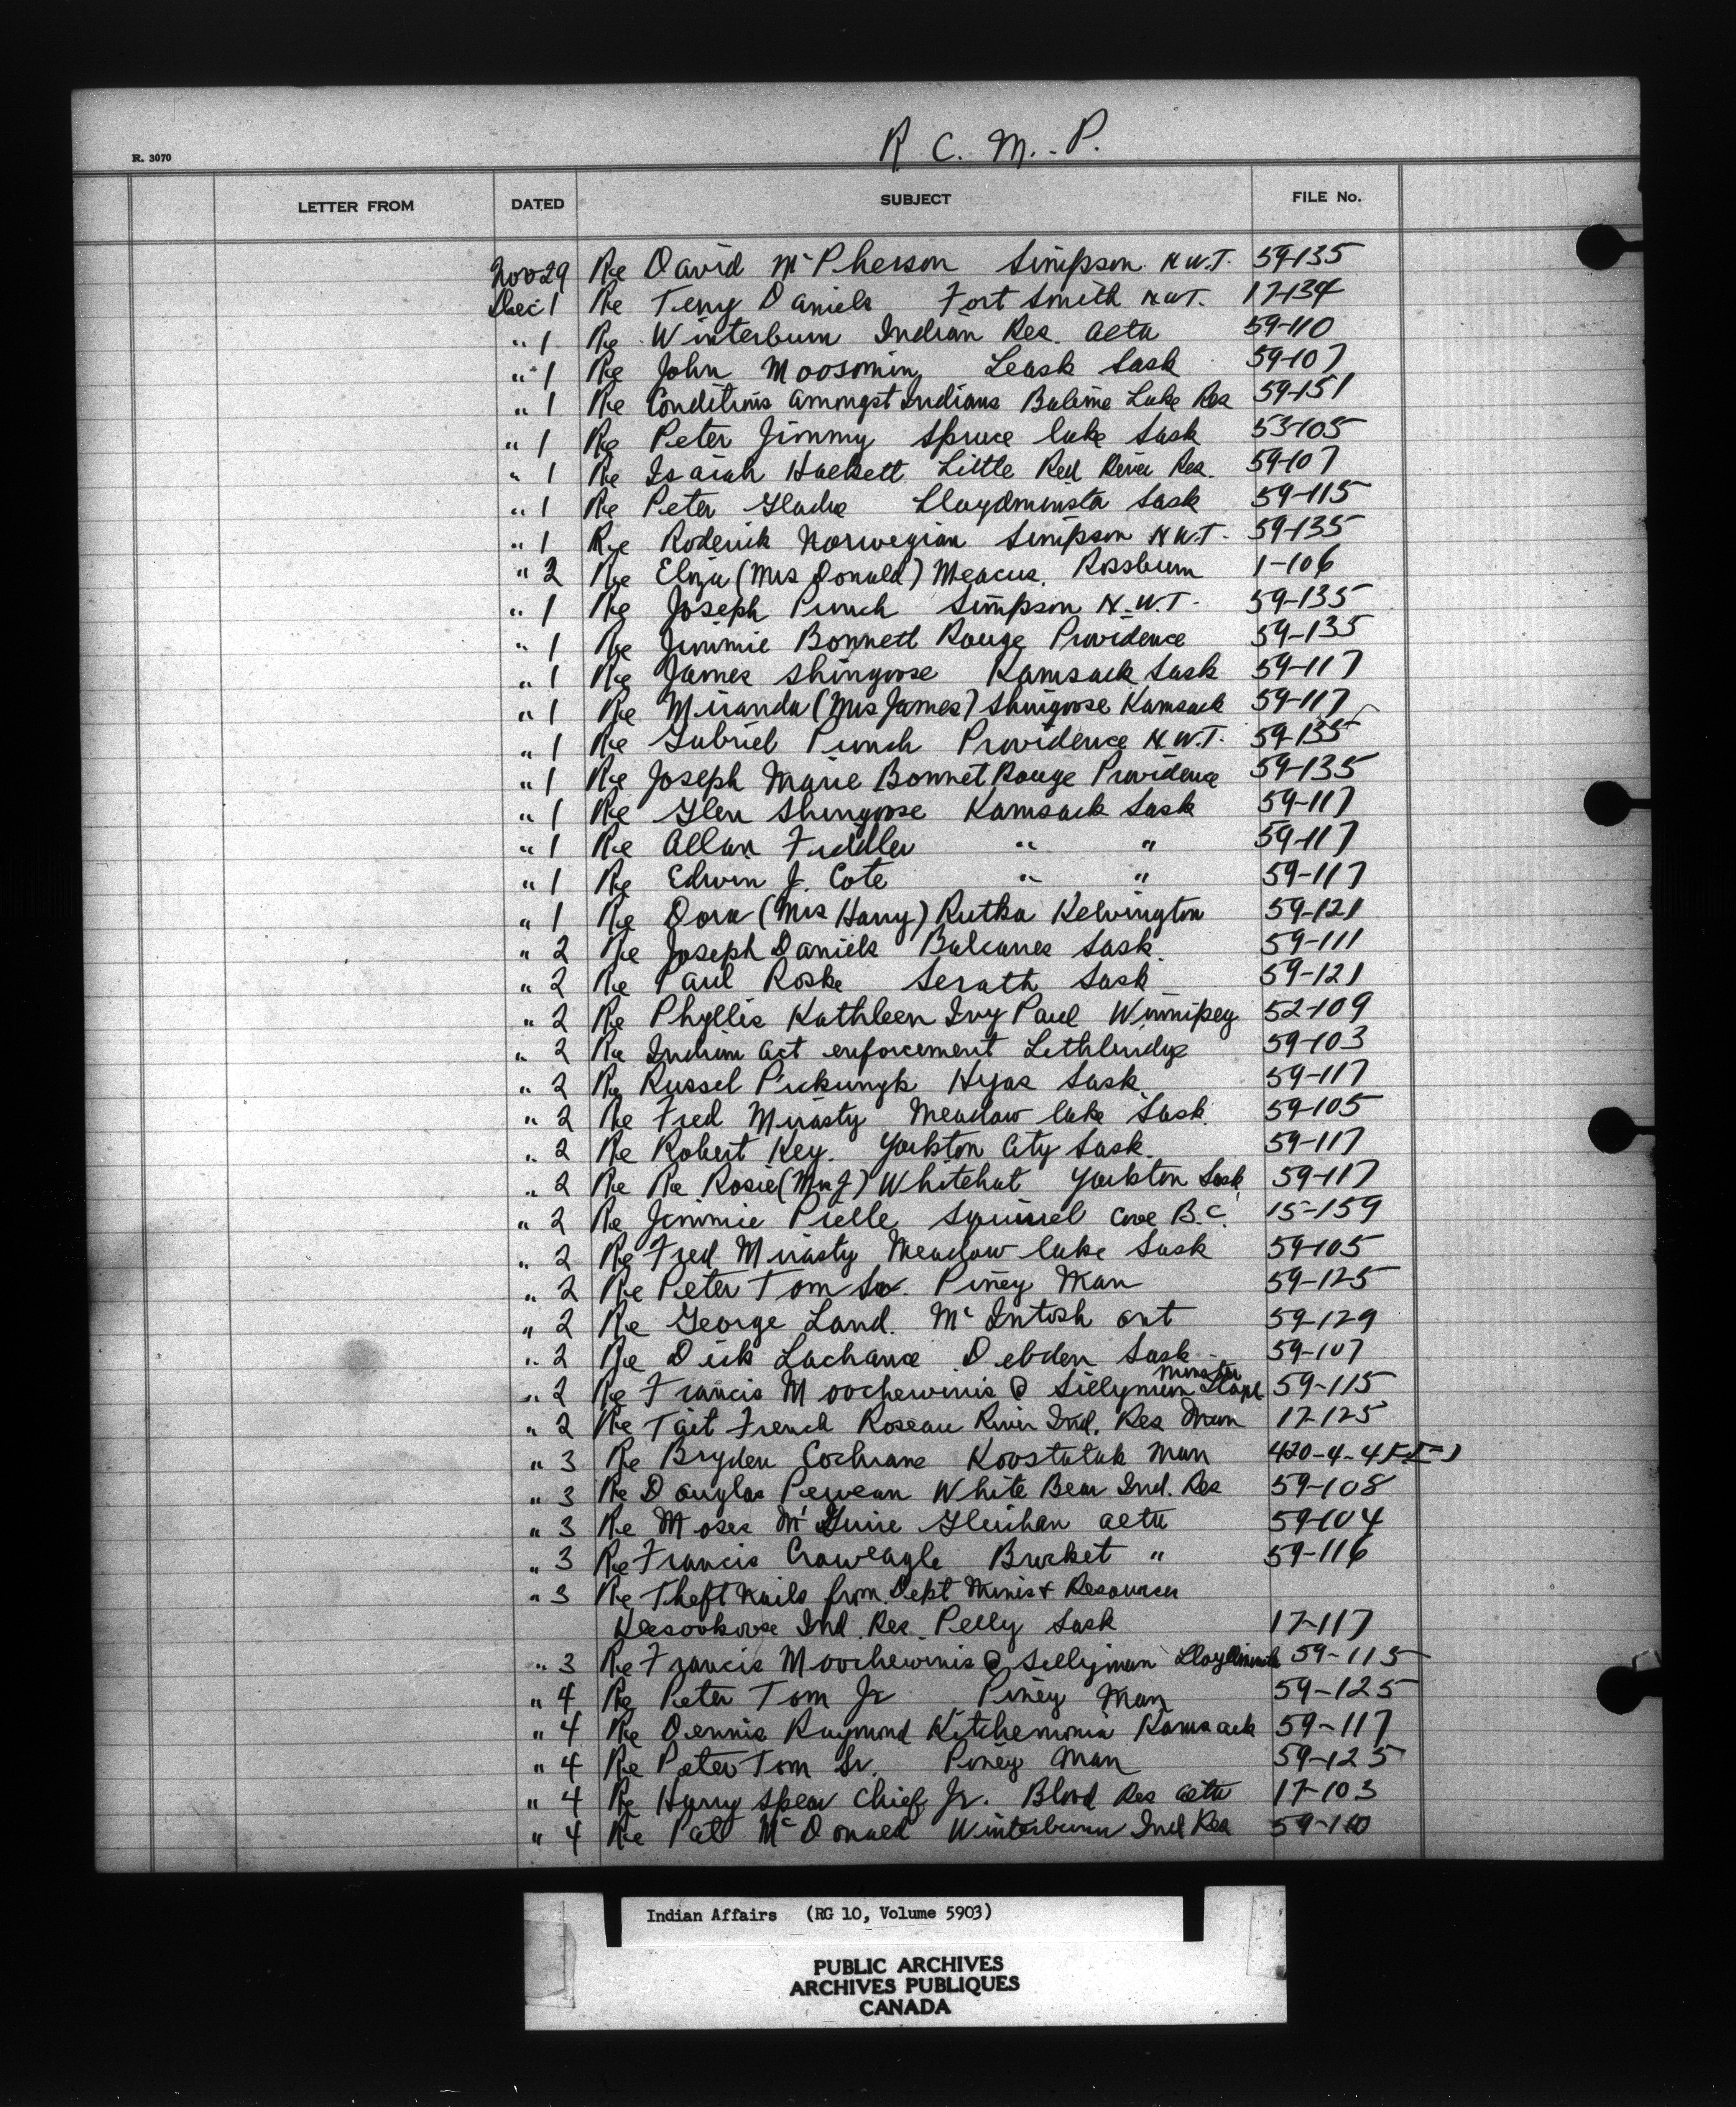 R. C. M. P.
R. 3070
LETTER FROM DATED SUBJECT FILE No.
Nov 29 Re David McPherson Simpson N.W.T. 59-135
Dec 1 Re Terry Daniels Fort Smith N.W.T. 17-134
" 1 Re Winterburn Indian Res. Alta 59-110
" 1 Re John Moosomin, Leask Sask 59-107
" 1 Re Conditions amongst Indians Lake Res 59-151
" 1 Re Peter Jimmy Spruce lake Sask 53-105
" 1 Re Isaiah Hackett Little Red River Res. 59-107
" 1 Re Peter Gladue Lloydminster Sask 59-115
" 1 Re Roderick Norwegian Simpson N.W.T. 59-135
" 2 Re Eliza (Mrs Donald) Meacus. Rossburn 1-106
" 1 Re Joseph Punch Simpson N.W.T. 59-135
" 1 Re Jimmie Bonnett Rouge Providence 59-135
" 1 Re James Shingoose Kamsack Sask 59-117
" 1 Re Miranda (Mrs James) Shingoose Kamsack 59-117
" 1 Re Gabriel Punch Providence N.W.T. 59-135
" 1 Re Joseph Marie Bonnet Rouge Providence 59-135
" 1 Re Glen Shingoose Kamsack Sask 59-117
" 1 Re Allan Fiddler " " 59-117
" 1 Re Edwin J. Cote " " 59-117
" 1 Re Dora (Mrs Harry) Rutka Kelvington 59-121
" 2 Re Joseph Daniels Balcarres Sask. 59-111
" 2 Re Paul Roske Serath Sask 59-121
" 2 Re Phyllis Kathleen Ivy Paul Winnipeg 52-109
" 2 Re Indian Act enforcement Lethbridge 59-103
" 2 Re Russel Hyas Sask 59-117
" 2 Re Fred Mirasty Meadow lake Sask. 59-105
" 2 Re Robert Key. Yorkton City Sask. 59-117
" 2 Re Re Rosie (Mrs J) Whitehat Yorkton Sask 59-117
" 2 Re Jimmie Pielle Squirrel Cove B.C. 15-159
" 2 Re Fred Mirasty Meadow lake Sask 59-105
" 2 Re Peter Tom Sr. Piney Man 59-125
" 2 Re George Land. McIntosh Ont 59-129
" 2 Re Dick Lachance Debden Sask 59-107
" 2 Re Francis Moochewinis @ Sillyman 59-115
" 2 Re Tait French Roseau River Ind. Res Man 17-125
" 3 Re Bryden Cochrane Koostatak Man 420-4-4
" 3 Re Douglas Pewean White Bear Ind. Res 59-108
" 3 Re Moses McGuire Gleichan Alta 59-104
" 3 Re Francis Croweagle Brocket " 59-116
" 3 Re Theft Nails from Dept Mines & Resources
Keesookoose Ind. Res. Pelly Sask 17-117
" 3 Re Francis Moochewinis @ Sillyman Lloydminster 59-115
" 4 Re Peter Tom Jr Piney Man 59-125
" 4 Re Dennis Raymond Kitchemonia Kamsack 59-117
" 4 Re Peter Tom Sr. Piney Man 59-125
" 4 Re Harry Spear Chief Jr. Blood Res Alta 17-103
" 4 Re Pat McDonald Winterburn Ind Res 59-110
Indian Affairs (RG 10, Volume 5903)
PUBLIC ARCHIVES
ARCHIVES PUBLIQUES
CANADA